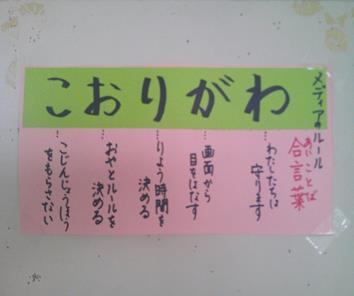 メディアのルール
あいことば
合言葉
こおりがわ
…わたしたちは
守ります
…画面から
目をはなす
…りよう時間を
決める
…おやとルールを
決める
…こじんじょうほう
をもらさない